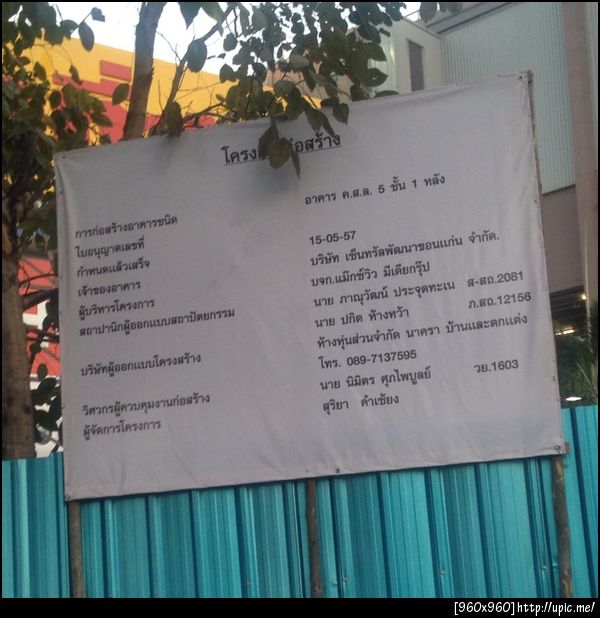 โครงการก่อสร้าง
การก่อสร้างอาคารชนิด อาคาร ค.ส.ล. 5 ชั้น 1 หลัง
ใบอนุญาตเลขที่
กำหนดแล้วเสร็จ 15-05-57
เจ้าของอาคาร บริษัท เซ็นทรัลพัฒนาขอนแก่น จำกัด.
ผู้บริหารโครงการ บจก.แม๊กซ์วิว มีเดียกรุ๊ป
สถาปานิกผู้ออกแบบสถาปัตยกรรม นาย ภาณุวัฒน์ ประจุดทะเน ส-สถ.2081
นาย ปกิต ห้างหว้า ภ.สถ.12156
บริษัทผู้ออกแบบโครงสร้าง ห้างหุ่นส่วนจำกัด นาครา บ้านและตกแต่ง
โทร. 089-7137595
วิศวกรผู้ควบคุมงานก่อสร้าง นาย นิมิตร ศุภไพบูลย์ วย.1603
ผู้จัดการโครงการ สุริยา คำเชียง
[960x960]http://upic.me/